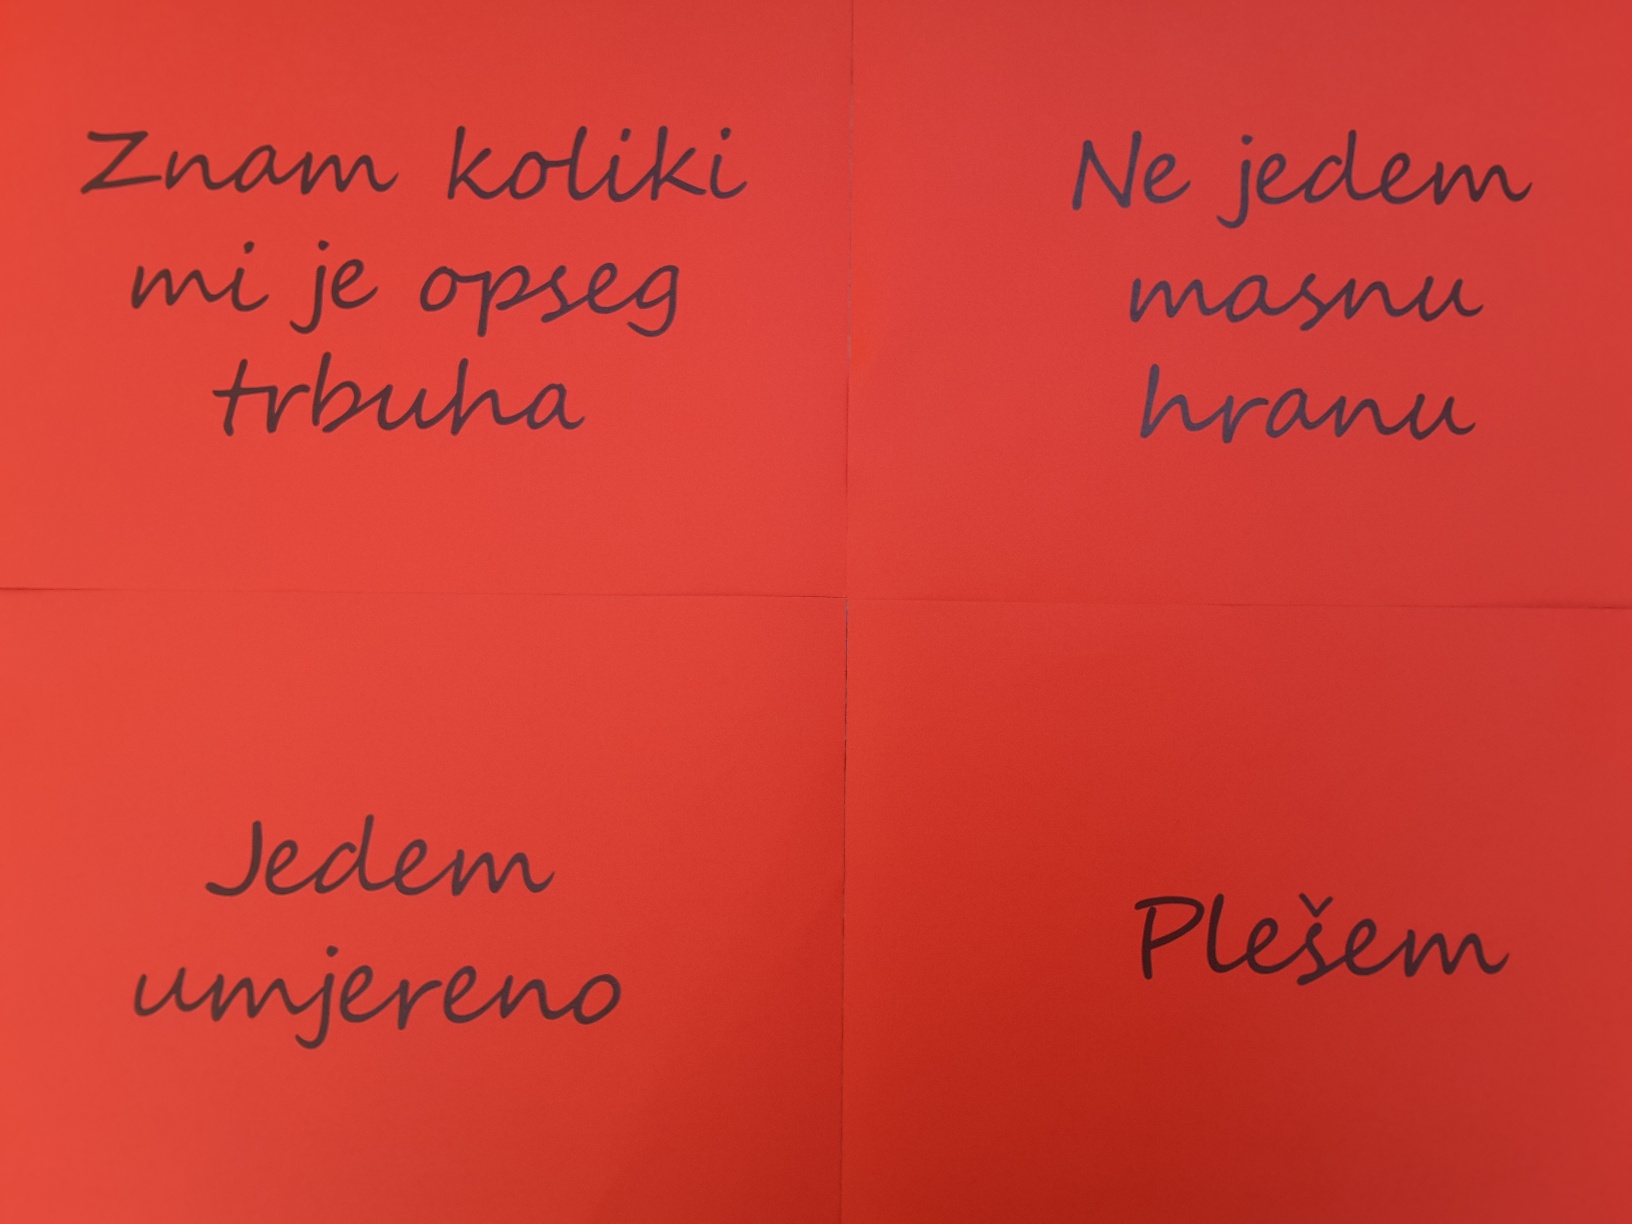 Znam koliki
mi je opseg
trbuha
Ne jedem
masnu
hranu
Jedem
umjereno
Plešem